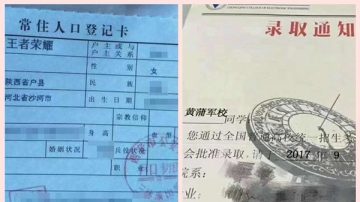 常住人口登记卡
王者荣耀
户主或与
户主关系
性别
女
陕西省户县
民族
河北省沙河市
出生日期
宗教信仰
身高
血型
婚姻状况
兵役状况
CHONGQING COLLEGE OF ELECTRONIC ENGINEERING
录取通知
黄蒲军校
同学
您通过全国普通高校统一招生考
会批准录取,请于 2017 年 9
院系:
专业: